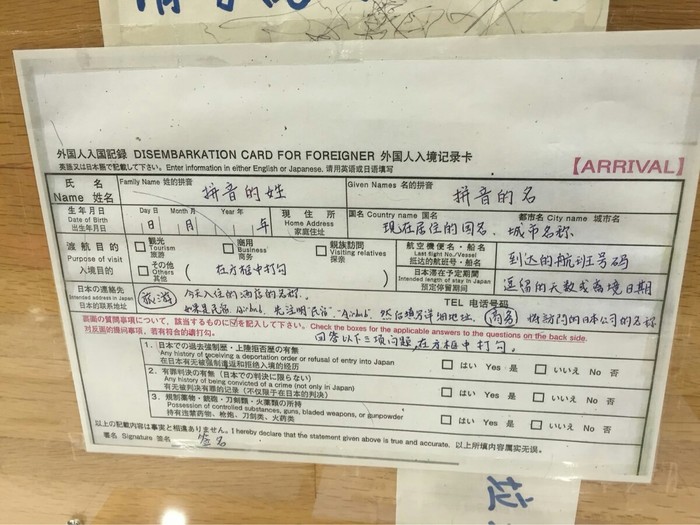 外国人入国記録 DISEMBARKATION CARD FOR FOREIGNER 外国人入境记录卡
英語又は日本語で記載して下さい。Enter information in either English or Japanese. 请用英语或日语填写
【ARRIVAL】
氏 名
Name 姓名
Family Name 姓的拼音
拼音的姓
Given Names 名的拼音
拼音的名
生年月日
Date of Birth
出生年月日
Day 日 Month 月 Year 年
日 月 年
現 住 所
Home Address
家庭住址
国名 Country name 国名
现在居住的国名.
都市名 City name 城市名
城市名称
渡航目的
Purpose of visit
入境目的
観光
Tourism
旅游
商用
Business
商务
親族訪問
Visiting relatives
探亲
その他
Others
其他
( 在方框中打勾
航空機便名・船名
Last flight No./Vessel
抵达的航班号・船名
到达的航班号码
日本滞在予定期間
Intended length of stay in Japan
预定停留期间
逗留的天数或离境日期
日本の連絡先
Intended address in Japan
日本的联系地址
(旅游) 今天入住的酒店的名称.
如果是民宿, Airbnb, 先注明"民宿" "Airbnb", 然后填写详细地址.
TEL 电话号码
(商务) 你访问的日本公司的名称
裏面の質問事項について、該当するものに☑を記入して下さい。Check the boxes for the applicable answers to the questions on the back side.
对反面的提问事项，若有符合的请打勾。
回答以下三项问题,在方框中打勾。
1. 日本での退去強制歴・上陸拒否歴の有無
Any history of receiving a deportation order or refusal of entry into Japan
在日本有无被强制遣返和拒绝入境的经历
はい Yes 是 いいえ No 否
2. 有罪判決の有無（日本での判決に限らない）
Any history of being convicted of a crime (not only in Japan)
有无被判决有罪的记录（不仅限于在日本的判决）
はい Yes 是 いいえ No 否
3. 規制薬物・銃砲・刀剣類・火薬類の所持
Possession of controlled substances, guns, bladed weapons, or gunpowder
持有违禁药物、枪炮、刀剑类、火药类
はい Yes 是 いいえ No 否
以上の記載内容は事実と相違ありません。I hereby declare that the statement given above is true and accurate. 以上所填内容属实无误。
署名 Signature 签名
签名